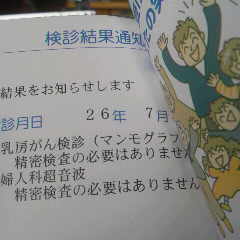 検診結果通知
結果をお知らせします
診月日 26年 7月
乳房がん検診(マンモグラフ
精密検査の必要はありません
婦人科超音波
精密検査の必要はありません